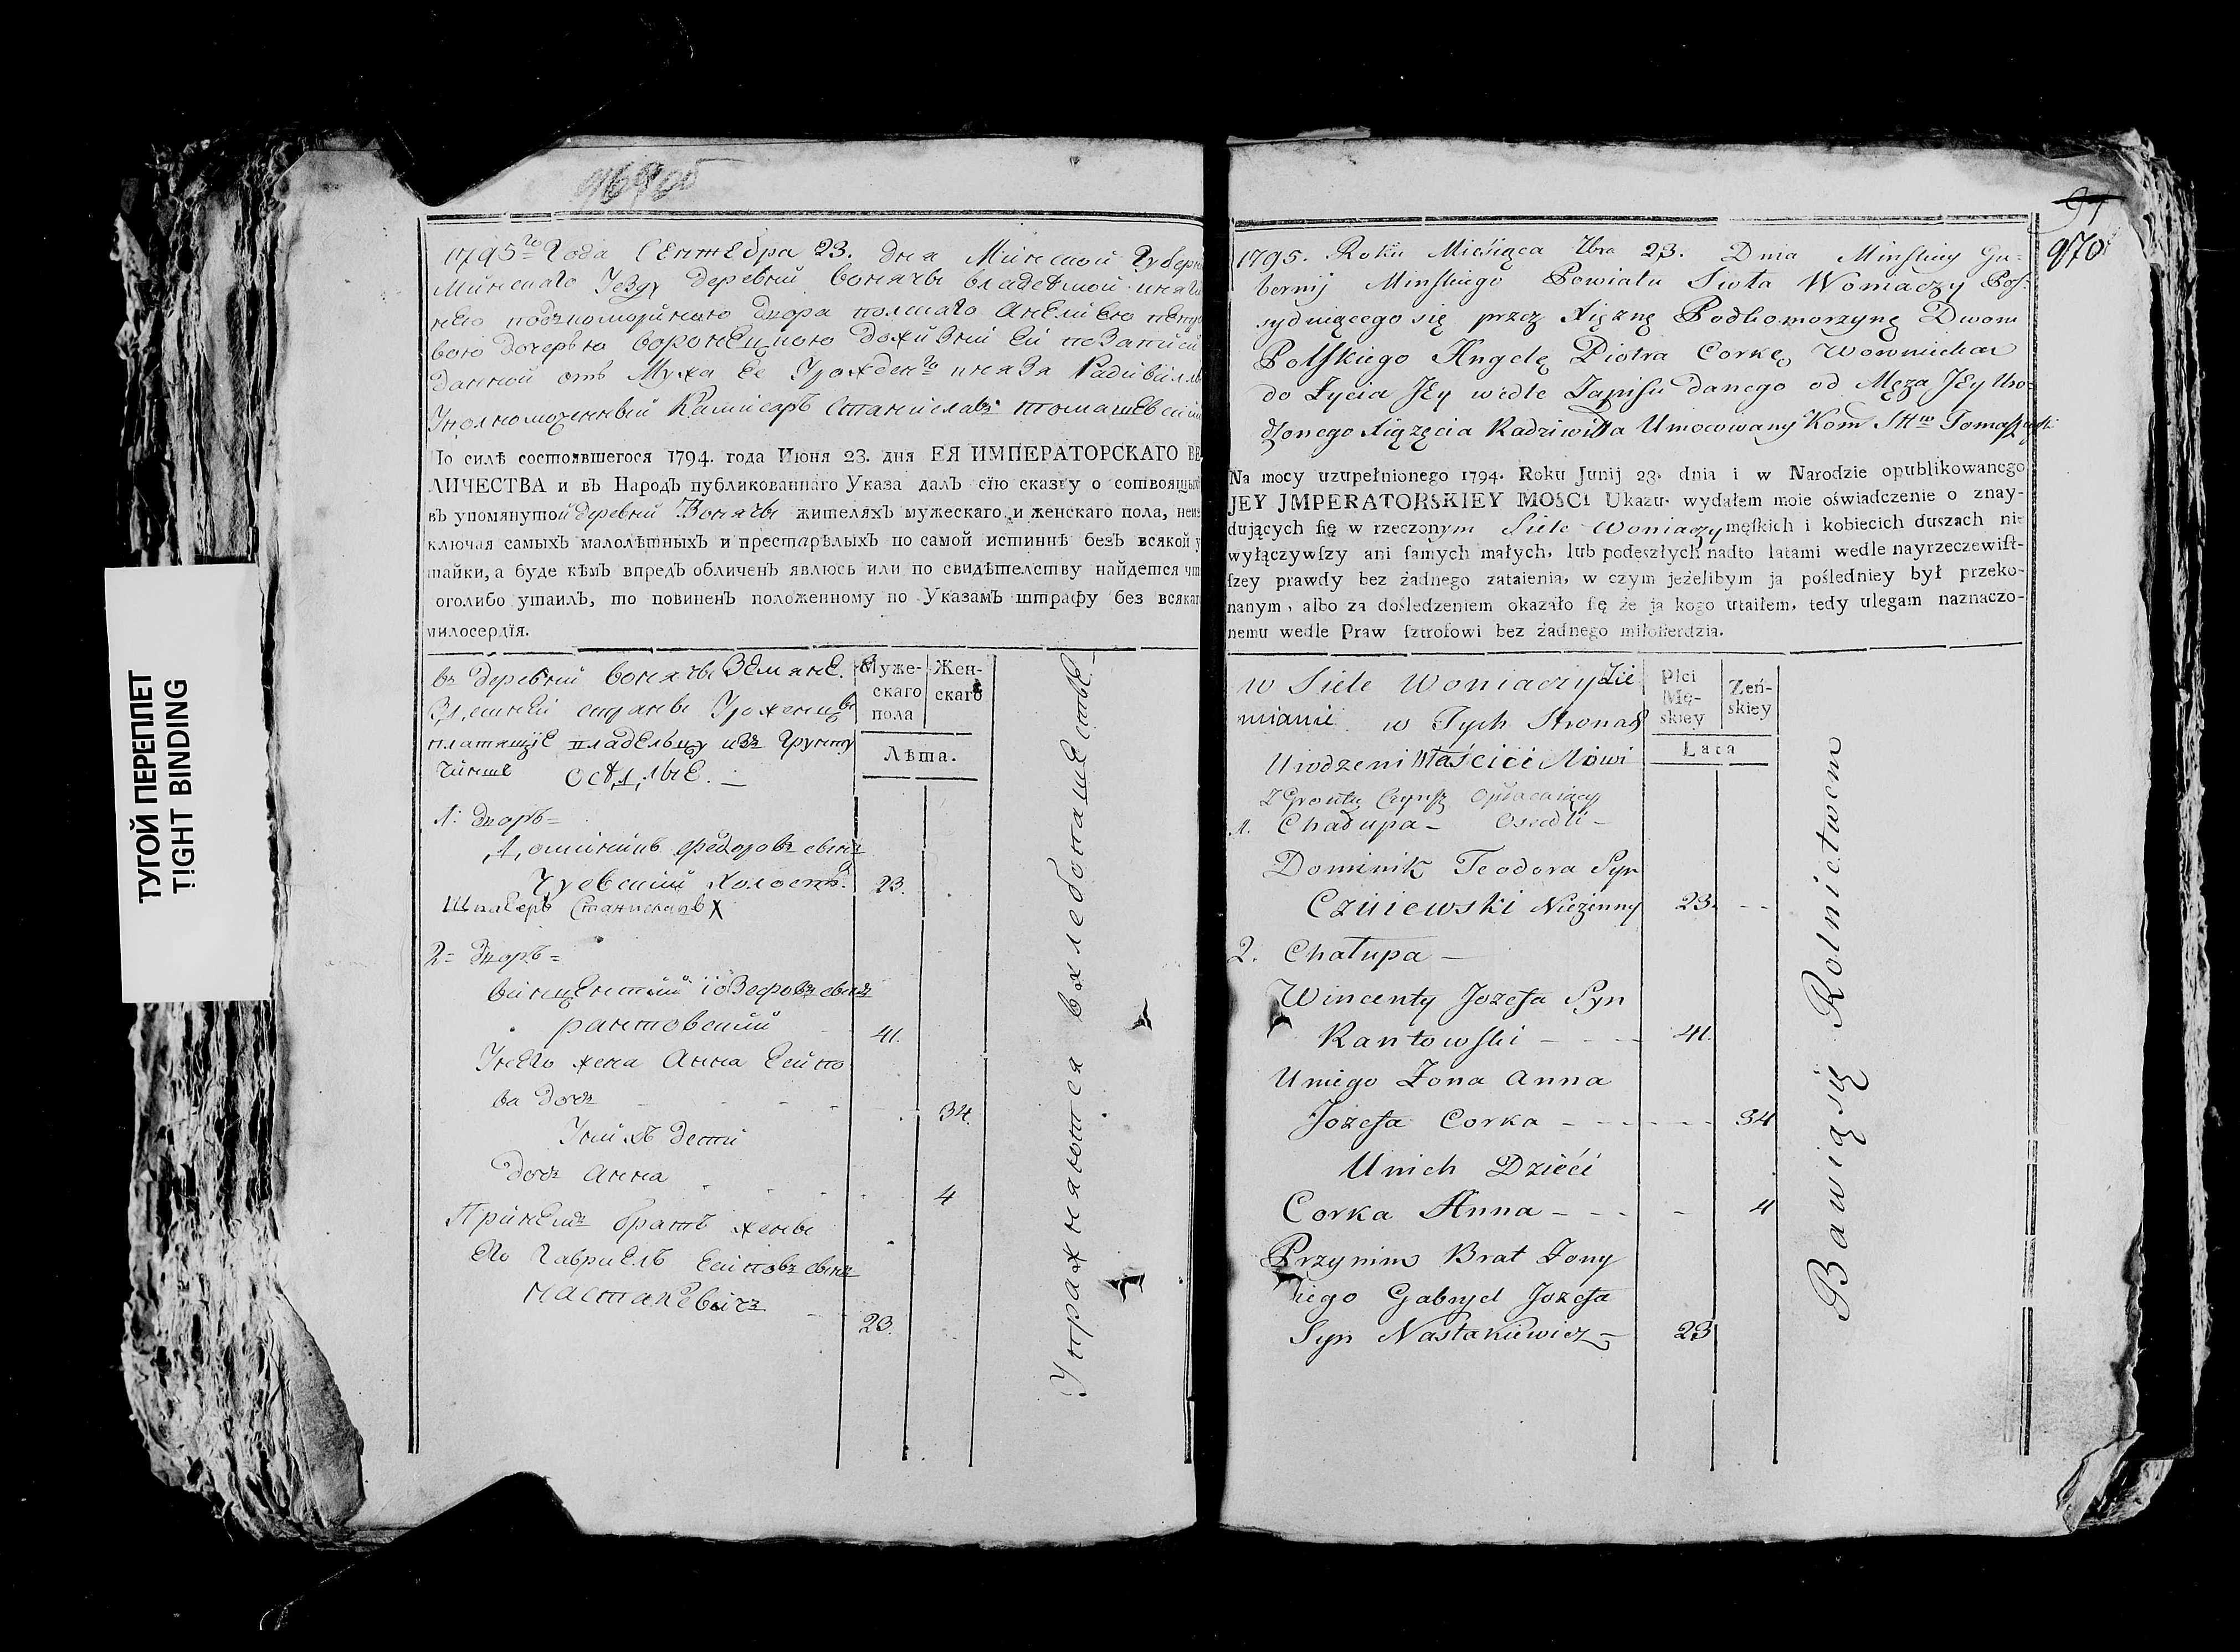 ТУГОЙ ПЕРЕПЛЕТ
TIGHT BINDING
1795го Года Сентебра 23. дня Минской Губерн
Минскаго Уезду деревни Вонячи владеемой княги
нею подкоморинею двора полскаго Анелиею петро
вою дочерью дожизни ей по записи
данной отъ Мужа Ее Урожденго князя Радивилла
Уполномоченный Камисаръ Станиславъ томашевский
По силѣ состоявшегося 1794. года Июня 23. дня ЕЯ ИМПЕРАТОРСКАГО ВЕ
ЛИЧЕСТВА и въ Народъ публикованнаго Указа далъ сїю сказку о состоящых
въ упомянутой деревни Вонячи жителяхъ мужескаго и женскаго пола, неис
ключая самыхъ малолѣтныхъ и престарѣлыхъ по самой истиннѣ безъ всякой у
тайки, а буде кѣмъ впредъ обличенъ явлюсь или по свидѣтелству найдется чт
оголибо утаилъ, то повиненъ положенному по Указамъ штрафу без всякаг
милосердїя.
въ деревни вонячи Земяне.
Здешней страны Уроженцы
платящiе владельцу изъ Грунту
чинше оседлые. —
Муже-
скаго
пола
Жен-
скаго
Лѣта.
1. дворъ =
Доминикъ Федоровъ сынъ
Чуевский холостъ. 23.
Станиславъ X
2 = дворъ =
Винцентий iозефовъ сынъ
рантовский 41.
Унего жена Анна Есипо
ва дочь 34.
Унихъ дети
дочь Анна 4
Принемъ братъ жены
Его Гавриелъ Есиповъ сынъ
настакевичъ 23.
Упражняются в хлебопашестве
97
970
1795. Roku Miesiąca 7bra 23. Dnia Minskiey Gu-
bernij Minskiego Powiatu Sioła Woniaczy Pos-
syduiącego się przez Xiężnę Podkomorzynę Dworu
Polskiego Angelę Piotra Corkę
do Zycia Jey wedle Zapisu danego od Męza Jey Uro-
dzonego Xiązęcia Radziwiłła Umocowany Kom Stw Tomaszewski
Na mocy uzupełnionego 1794. Roku Junij 23. dnia i w Narodzie opublikowanego
JEY JMPERATORSKIEY MOSCI Ukazu. wydałem moie oświadczenie o znay-
dujących się w rzeczonym Siele Woniaczy męskich i kobiecich duszach nie
wyłączywszy ani samych małych, lub podeszłych nadto latami wedle nayrzeczewist-
szey prawdy bez żadnego zataienia, w czym jeżelibym ja poślednieу był przeko-
nanym, albo za dośledzeniem okazało się że ja kogo utaiłem, tedy ulegam naznaczo-
nemu wedle Praw sztrofowi bez żadnego miłosierdzia.
w Siele Woniaczy Zie
mianie w Tych Stronach
Urodzeni Właścicielowi
Z Gruntu Czynsz Opłacaiący
Osiedli —
Płci
Mę-
skiey
Żeń-
skiey
Lata
1. Chałupa —
Dominik Teodora Syn
Czuiewski Niezenny 23.
2. Chałupa —
Wincenty Jozefa Syn
Rantowski 41.
Uniego Zona Anna
Jozefa Corka 34
Unich Dzieci
Corka Anna 4
Przynim Brat Zony
Iiego Gabryel Jozefa
Syn Nastakiewicz 23
Bawią się Rolnictwem